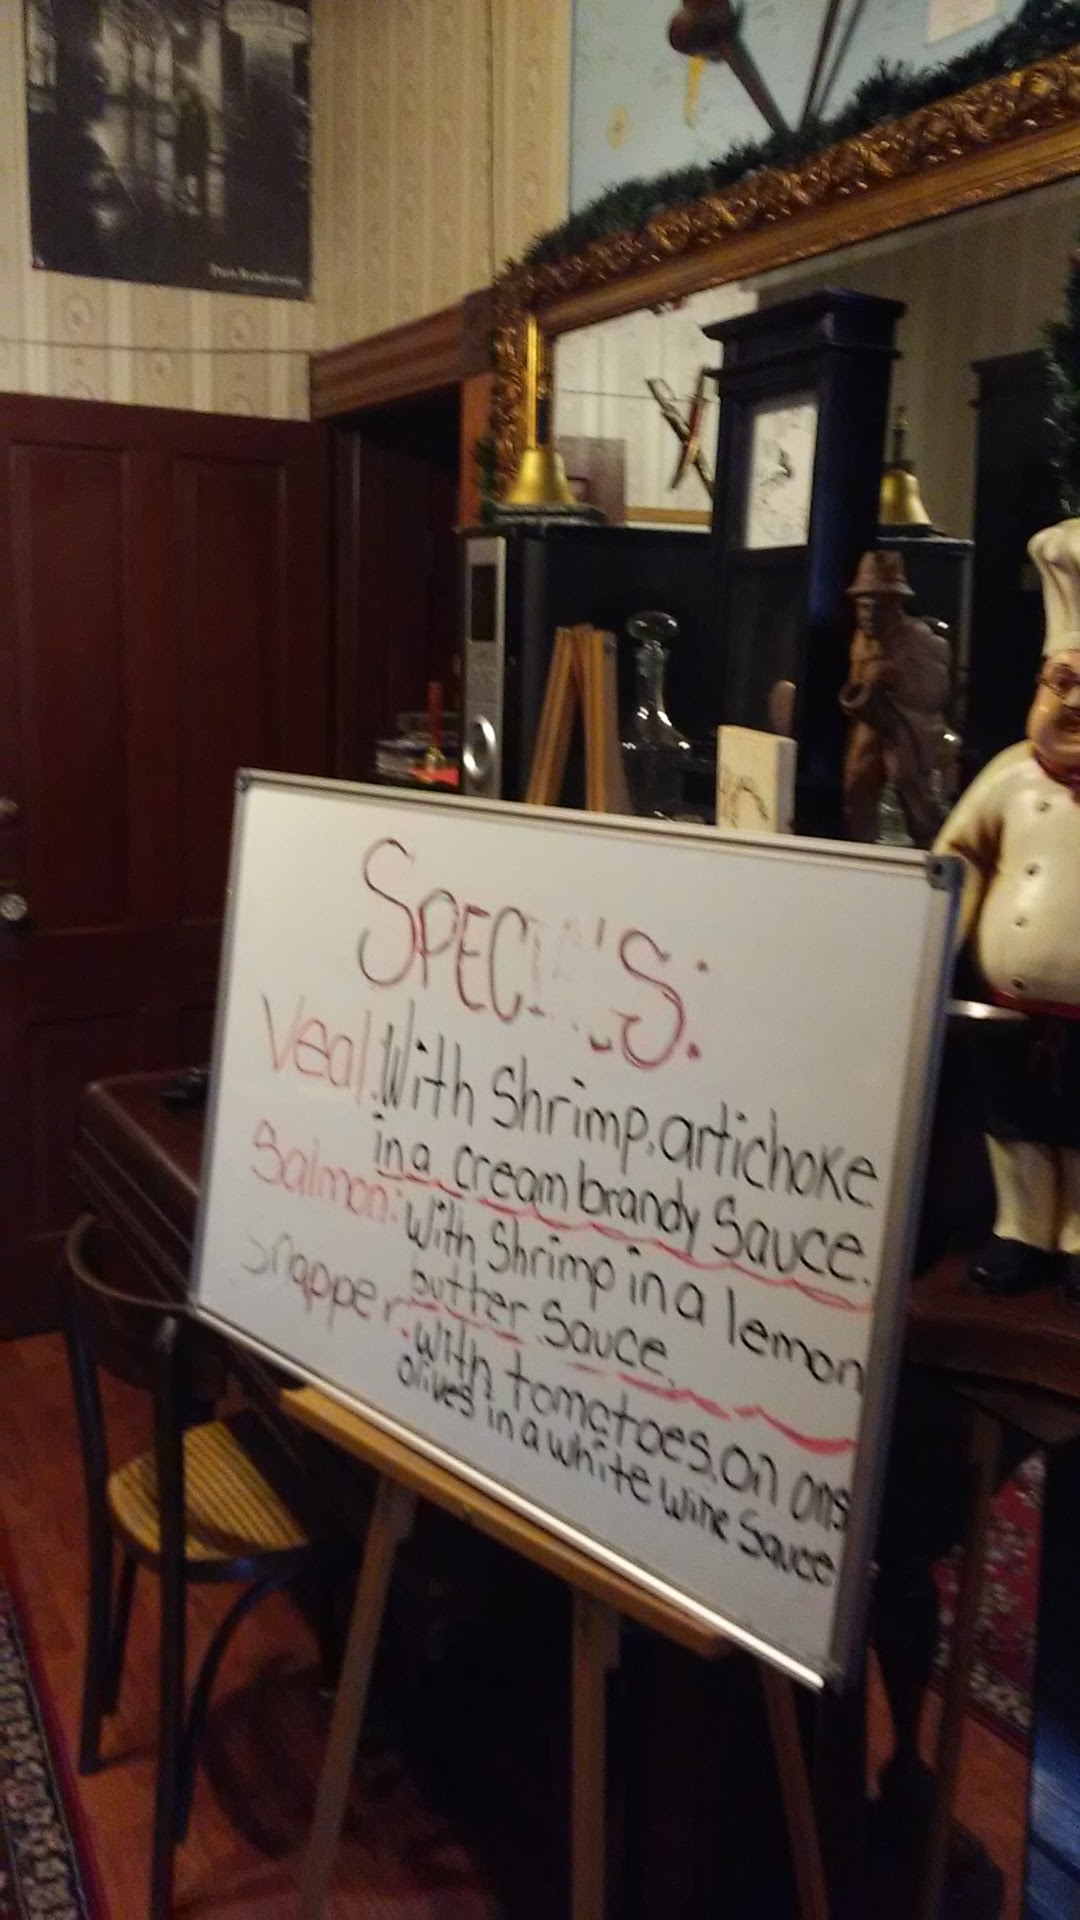 SPECIA'S:
Veal: With Shrimp, artichoke
in a cream brandy Sauce.
Salmon: With Shrimp in a lemon
butter Sauce.
Snapper: with tomatoes, onions
olives in a white wine Sauce